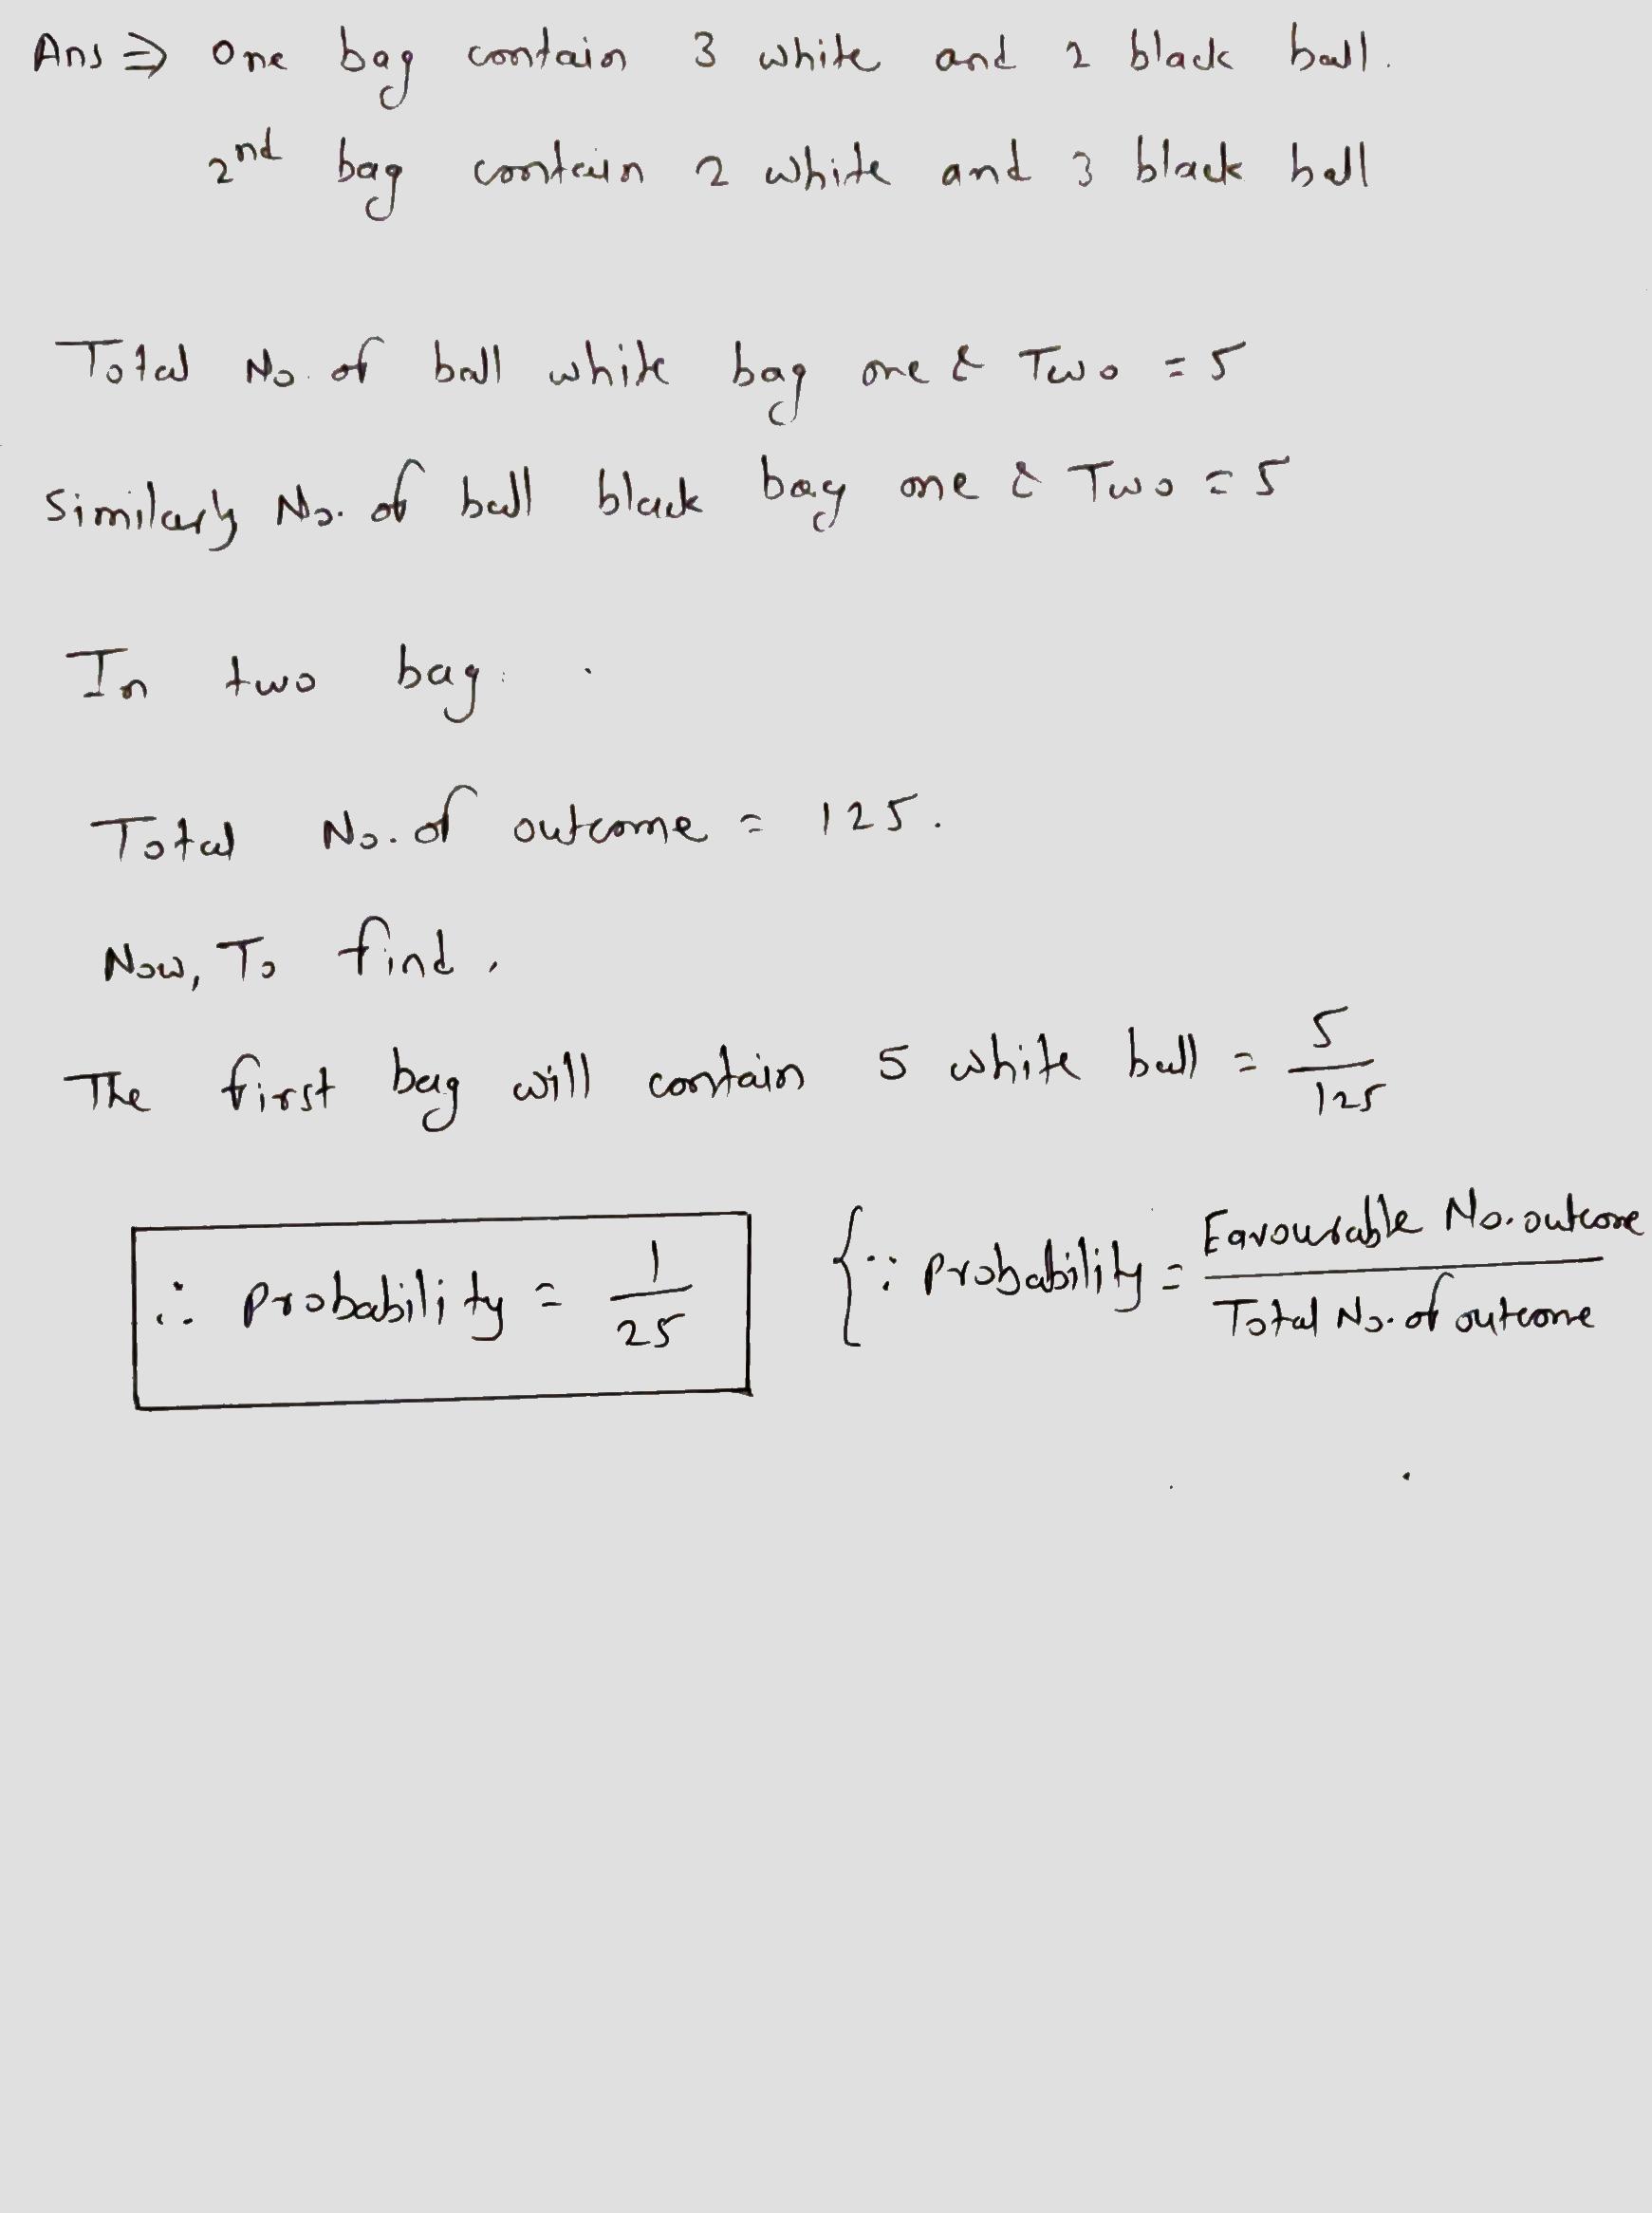 Ans ⇒ One bag contain 3 white and 2 black ball.
2nd bag contain 2 white and 3 black ball
Total No. of ball white bag one & Two = 5
Similarly No. of ball black bag one & Two = 5
In two bag.
Total No. of outcome = 125.
Now, To find,
The first bag will contain 5 white ball = 5/125
∴ Probability = 1/25 {∵ Probability = Favourable No. outcome / Total No. of outcome